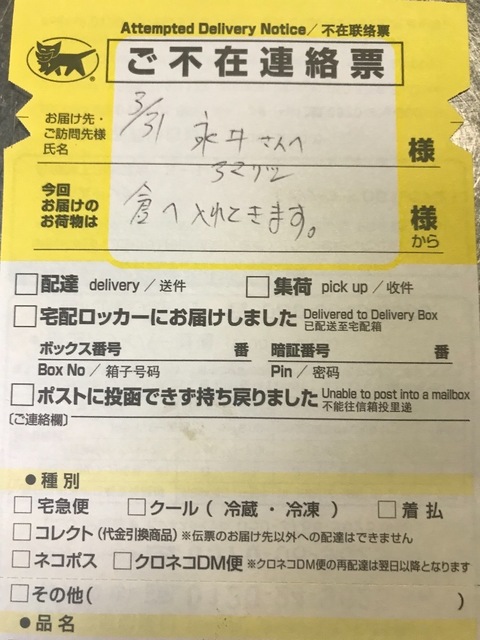 Attempted Delivery Notice／不在联络票
ご不在連絡票
お届け先・
ご訪問先様
氏名
3/31 永井さんへ
様
今回
お届けの
お荷物は
倉へ入れてきます。
様
から
配達 delivery／送件
集荷 pick up／收件
宅配ロッカーにお届けしました Delivered to Delivery Box
已配送至宅配箱
ボックス番号 番
暗証番号 番
Box No／箱子号码
Pin／密码
ポストに投函できず持ち戻りました Unable to post into a mailbox
不能往信箱投里递
〔ご連絡欄〕
●種別
宅急便
クール（冷蔵・冷凍）
着払
コレクト（代金引換商品）※伝票のお届け先以外への配達はできません
ネコポス
クロネコDM便 ※クロネコDM便の再配達は翌日以降となります
その他（ ）
●品名